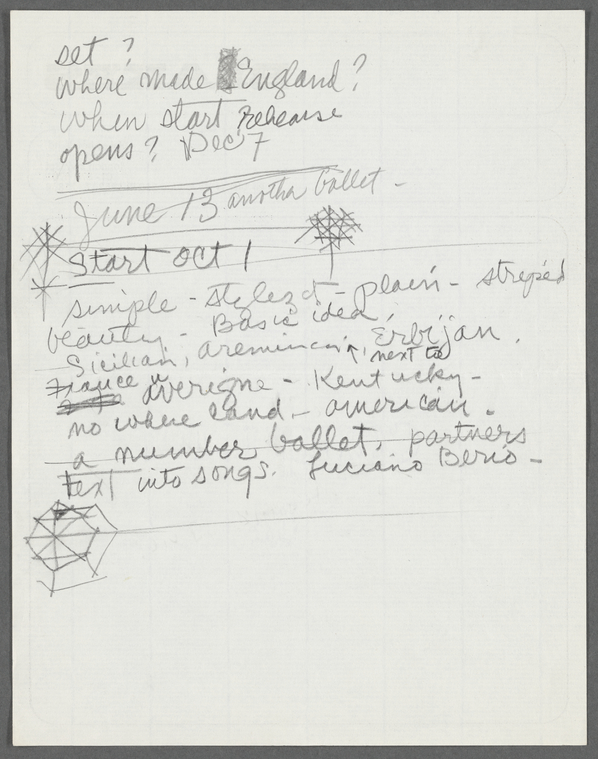 set ?
where made England ?
when start Rehearse
opens ? Dec 7
June 13 another ballet -
Start Oct 1
simple - stylezd - plain - stripéd
beauty - Basic idea,
Sicilian, areminian, Erbijan.
next to
France
averigne - Kentucky -
no where land - american.
a number ballet, partners
text into songs. Luciano Berio -